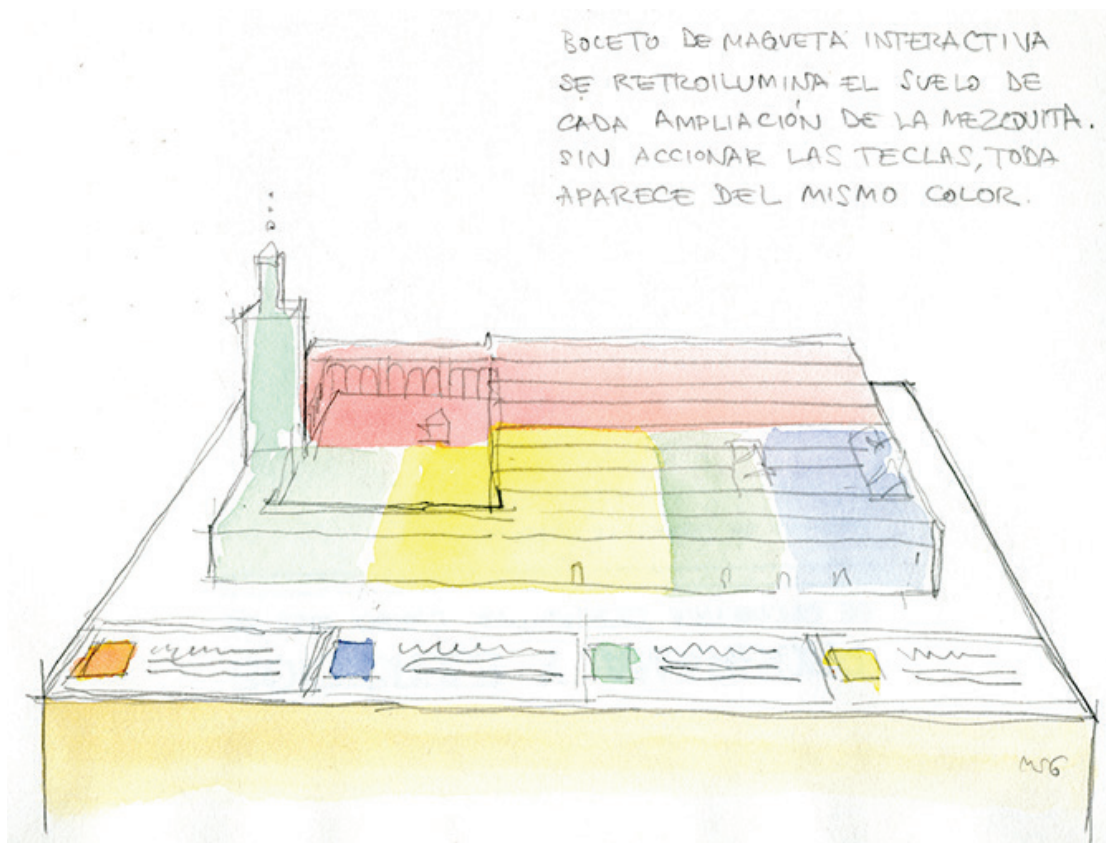 BOCETO DE MAQUETA INTERACTIVA
SE RETROILUMINA EL SUELO DE
CADA AMPLIACIÓN DE LA MEZQUITA.
SIN ACCIONAR LAS TECLAS, TODA
APARECE DEL MISMO COLOR.